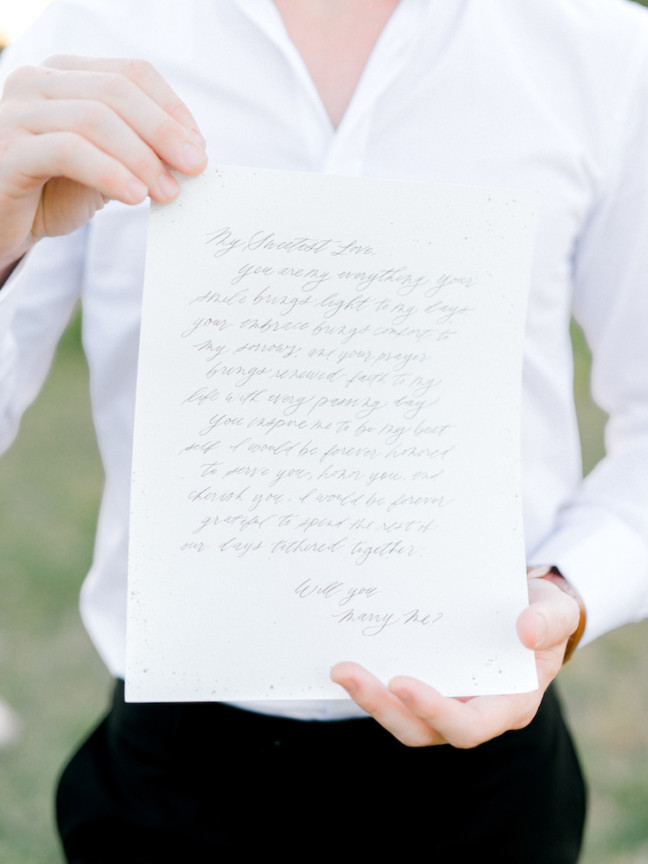 My Sweetest Love.
You are my everything your
smile brings light to my days
your embrace brings comfort to
my sorrows, and your prayer
brings renewed faith to my
life with every passing day
You inspire me to be my best
self. I would be forever honored
to serve you, honor you, and
cherish you. I would be forever
grateful to spend the rest of
our days tethered together.
Will you
Marry Me?